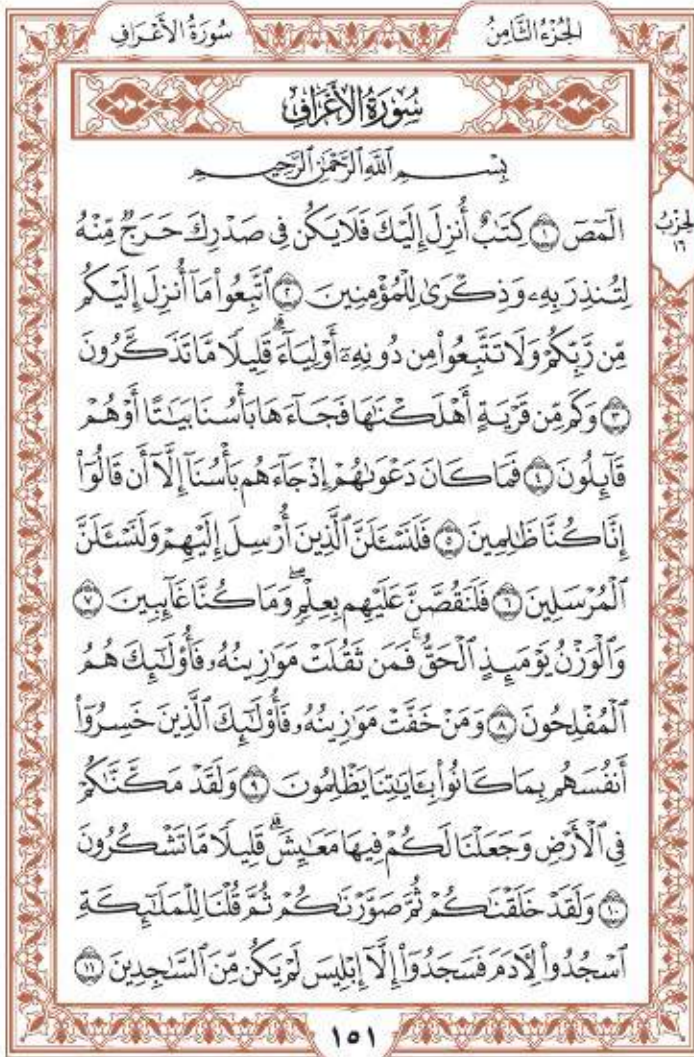 سُورَةُ الأَعْرَافِ
الجُزْءُ الثَّامِنُ
سُورَةُ الأَعْرَافِ
بِسْمِ ٱللَّهِ ٱلرَّحْمَٰنِ ٱلرَّحِيمِ
الٓمٓصٓ ١ كِتَٰبٌ أُنزِلَ إِلَيْكَ فَلَا يَكُن فِى صَدْرِكَ حَرَجٌ مِّنْهُ
لِتُنذِرَ بِهِۦ وَذِكْرَىٰ لِلْمُؤْمِنِينَ ٢ ٱتَّبِعُوا۟ مَآ أُنزِلَ إِلَيْكُم
مِّن رَّبِّكُمْ وَلَا تَتَّبِعُوا۟ مِن دُونِهِۦٓ أَوْلِيَآءَۗ قَلِيلًا مَّا تَذَكَّرُونَ
٣ وَكَم مِّن قَرْيَةٍ أَهْلَكْنَٰهَا فَجَآءَهَا بَأْسُنَا بَيَٰتًا أَوْ هُمْ
قَآئِلُونَ ٤ فَمَا كَانَ دَعْوَىٰهُمْ إِذْ جَآءَهُم بَأْسُنَآ إِلَّآ أَن قَالُوٓا۟
إِنَّا كُنَّا ظَٰلِمِينَ ٥ فَلَنَسْـَٔلَنَّ ٱلَّذِينَ أُرْسِلَ إِلَيْهِمْ وَلَنَسْـَٔلَنَّ
ٱلْمُرْسَلِينَ ٦ فَلَنَقُصَّنَّ عَلَيْهِم بِعِلْمٍۖ وَمَا كُنَّا غَآئِبِينَ ٧
وَٱلْوَزْنُ يَوْمَئِذٍ ٱلْحَقُّۚ فَمَن ثَقُلَتْ مَوَٰزِينُهُۥ فَأُو۟لَٰٓئِكَ هُمُ
ٱلْمُفْلِحُونَ ٨ وَمَنْ خَفَّتْ مَوَٰزِينُهُۥ فَأُو۟لَٰٓئِكَ ٱلَّذِينَ خَسِرُوٓا۟
أَنفُسَهُم بِمَا كَانُوا۟ بِـَٔايَٰتِنَا يَظْلِمُونَ ٩ وَلَقَدْ مَكَّنَّٰكُمْ
فِى ٱلْأَرْضِ وَجَعَلْنَا لَكُمْ فِيهَا مَعَٰيِشَۗ قَلِيلًا مَّا تَشْكُرُونَ
١٠ وَلَقَدْ خَلَقْنَٰكُمْ ثُمَّ صَوَّرْنَٰكُمْ ثُمَّ قُلْنَا لِلْمَلَٰٓئِكَةِ
ٱسْجُدُوا۟ لِـَٔادَمَ فَسَجَدُوٓا۟ إِلَّآ إِبْلِيسَ لَمْ يَكُن مِّنَ ٱلسَّٰجِدِينَ ١١
الحِزْبُ
١٦
١٥١